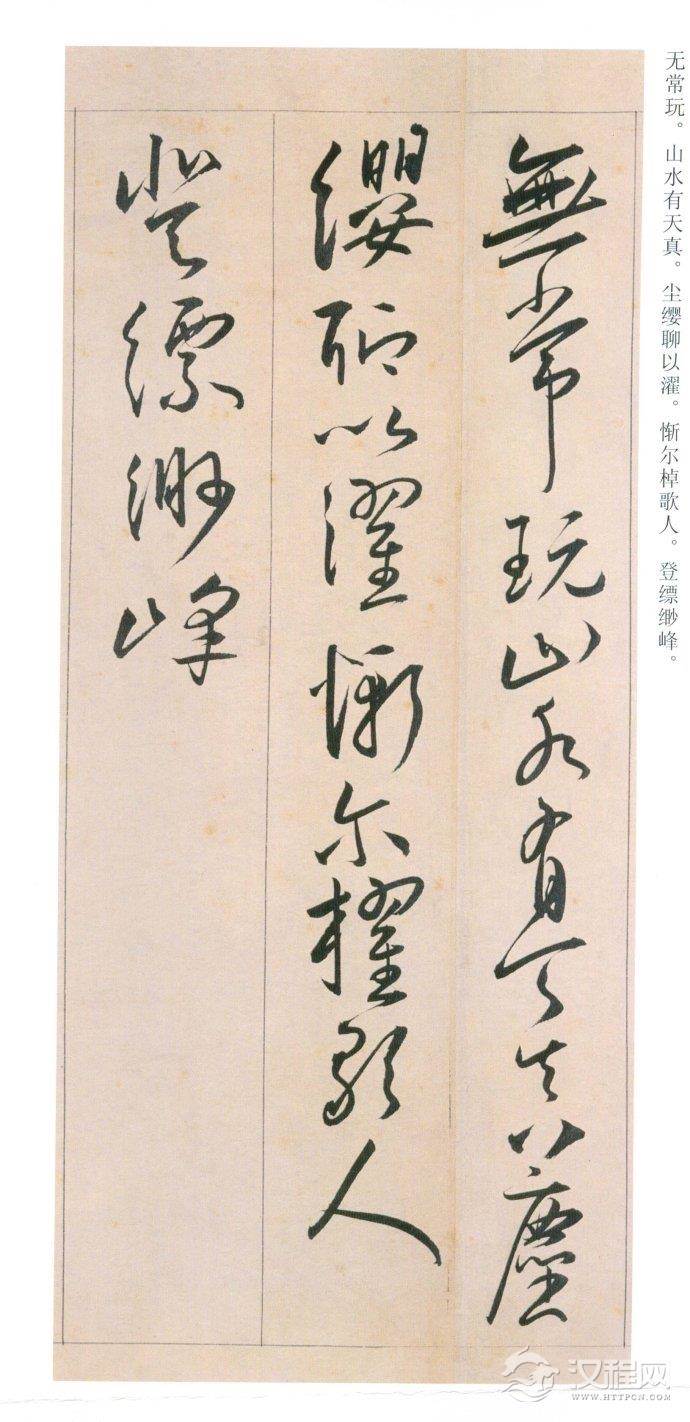 无常玩。山水有天真。尘缨聊以濯。惭尔棹歌人。登缥缈峰。
無常玩山水有天真塵
纓聊以濯慚尔櫂歌人
登縹緲峰
汉程网
WWW.HTTPCN.COM